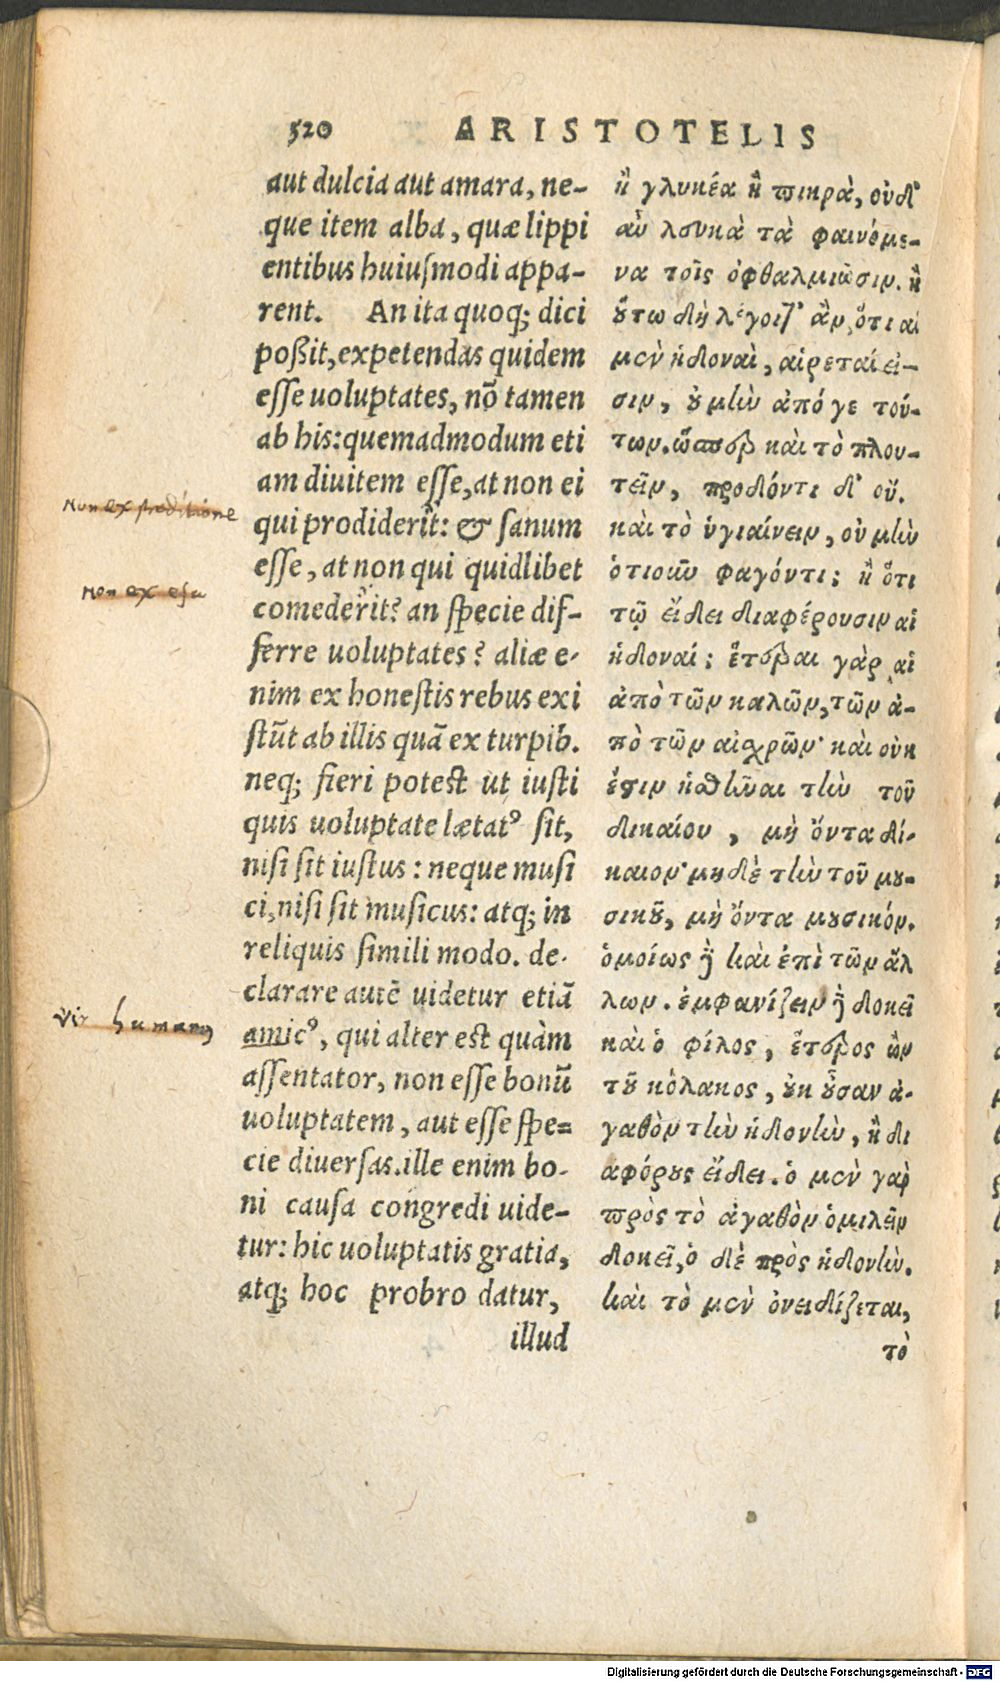 520 ARISTOTELIS
aut dulcia aut amara, ne-
que item alba, quæ lippi
entibus huiuſmodi appa-
rent. An ita quoq; dici
poßit, expetendas quidem
eſſe uoluptates, nõ tamen
ab his: quemadmodum eti
am diuitem eſſe, at non ei
qui prodiderit: & ſanum
eſſe, at non qui quidlibet
comederit? an ſpecie dif-
ferre uoluptates? aliæ e-
nim ex honeſtis rebus exi
ſtũt ab illis quã ex turpib.
neq; fieri poteſt ut iuſti
quis uoluptate lætatꝰ ſit,
niſi ſit iuſtus: neque muſi
ci, niſi ſit muſicus: atq; in
reliquis ſimili modo. de-
clarare autẽ uidetur etiã
amicꝰ, qui alter eſt quàm
aſſentator, non eſſe bonũ
uoluptatem, aut eſſe ſpe=
cie diuerſas. ille enim bo-
ni cauſa congredi uide-
tur: hic uoluptatis gratia,
atq; hoc probro datur,
illud
ἢ γλυκέα ἢ πικρὰ, οὐδ'
αὖ λευκὰ τὰ φαινόμε-
να τοῖς ὀφθαλμιῶσιν. ἢ
οὕτω δὴ λέγοιτ' ἂν, ὅτι αἱ
μὲν ἡδοναὶ, αἱρεταί εἰ-
σιν, οὐ μὴν ἀπό γε τού-
των. ὥσπερ καὶ τὸ πλου-
τεῖν, προδόντι δ' οὔ.
καὶ τὸ ὑγιαίνειν, οὐ μὴν
ὁτιοῦν φαγόντι; ἢ ὅτι
τῷ εἴδει διαφέρουσιν αἱ
ἡδοναί; ἕτεραι γὰρ αἱ
ἀπὸ τῶν καλῶν, τῶν ἀ-
πὸ τῶν αἰσχρῶν· καὶ οὐκ
ἔστιν ἡσθῆναι τὴν τοῦ
δικαίου, μὴ ὄντα δί-
καιον· μηδὲ τὴν τοῦ μου-
σικοῦ, μὴ ὄντα μουσικόν.
ὁμοίως δὲ καὶ ἐπὶ τῶν ἄλ
λων. ἐμφανίζειν δὲ δοκεῖ
καὶ ὁ φίλος, ἕτερος ὢν
τοῦ κόλακος, οὐκ οὖσαν ἀ-
γαθὸν τὴν ἡδονὴν, ἢ δι
αφόρους εἴδει. ὁ μὲν γὰρ
πρὸς τὸ ἀγαθὸν ὁμιλεῖν
δοκεῖ, ὁ δὲ πρὸς ἡδονήν.
καὶ τὸ μὲν ὀνειδίζεται,
τὸ
Non ex proditione
Non ex esu
Vir humanus
Digitalisierung gefördert durch die Deutsche Forschungsgemeinschaft - DFG